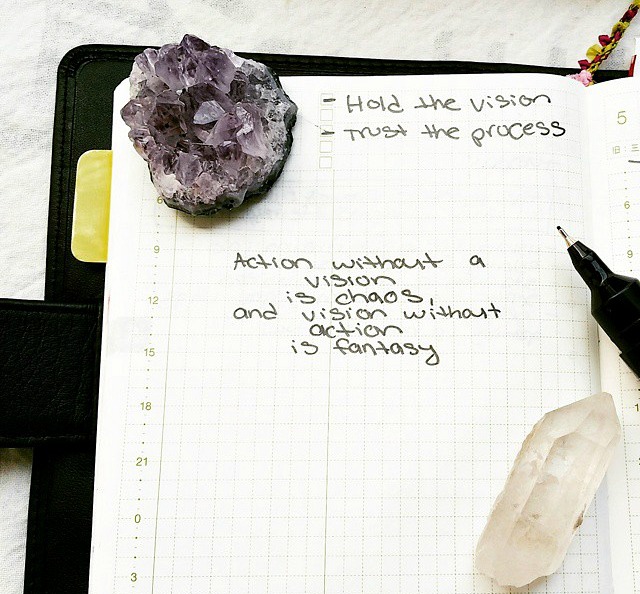 - Hold the vision
- Trust the process
5
旧:三
6
9
9
Action without a
vision
is chaos,
and vision without
action
is fantasy
12
15
18
21
0
3